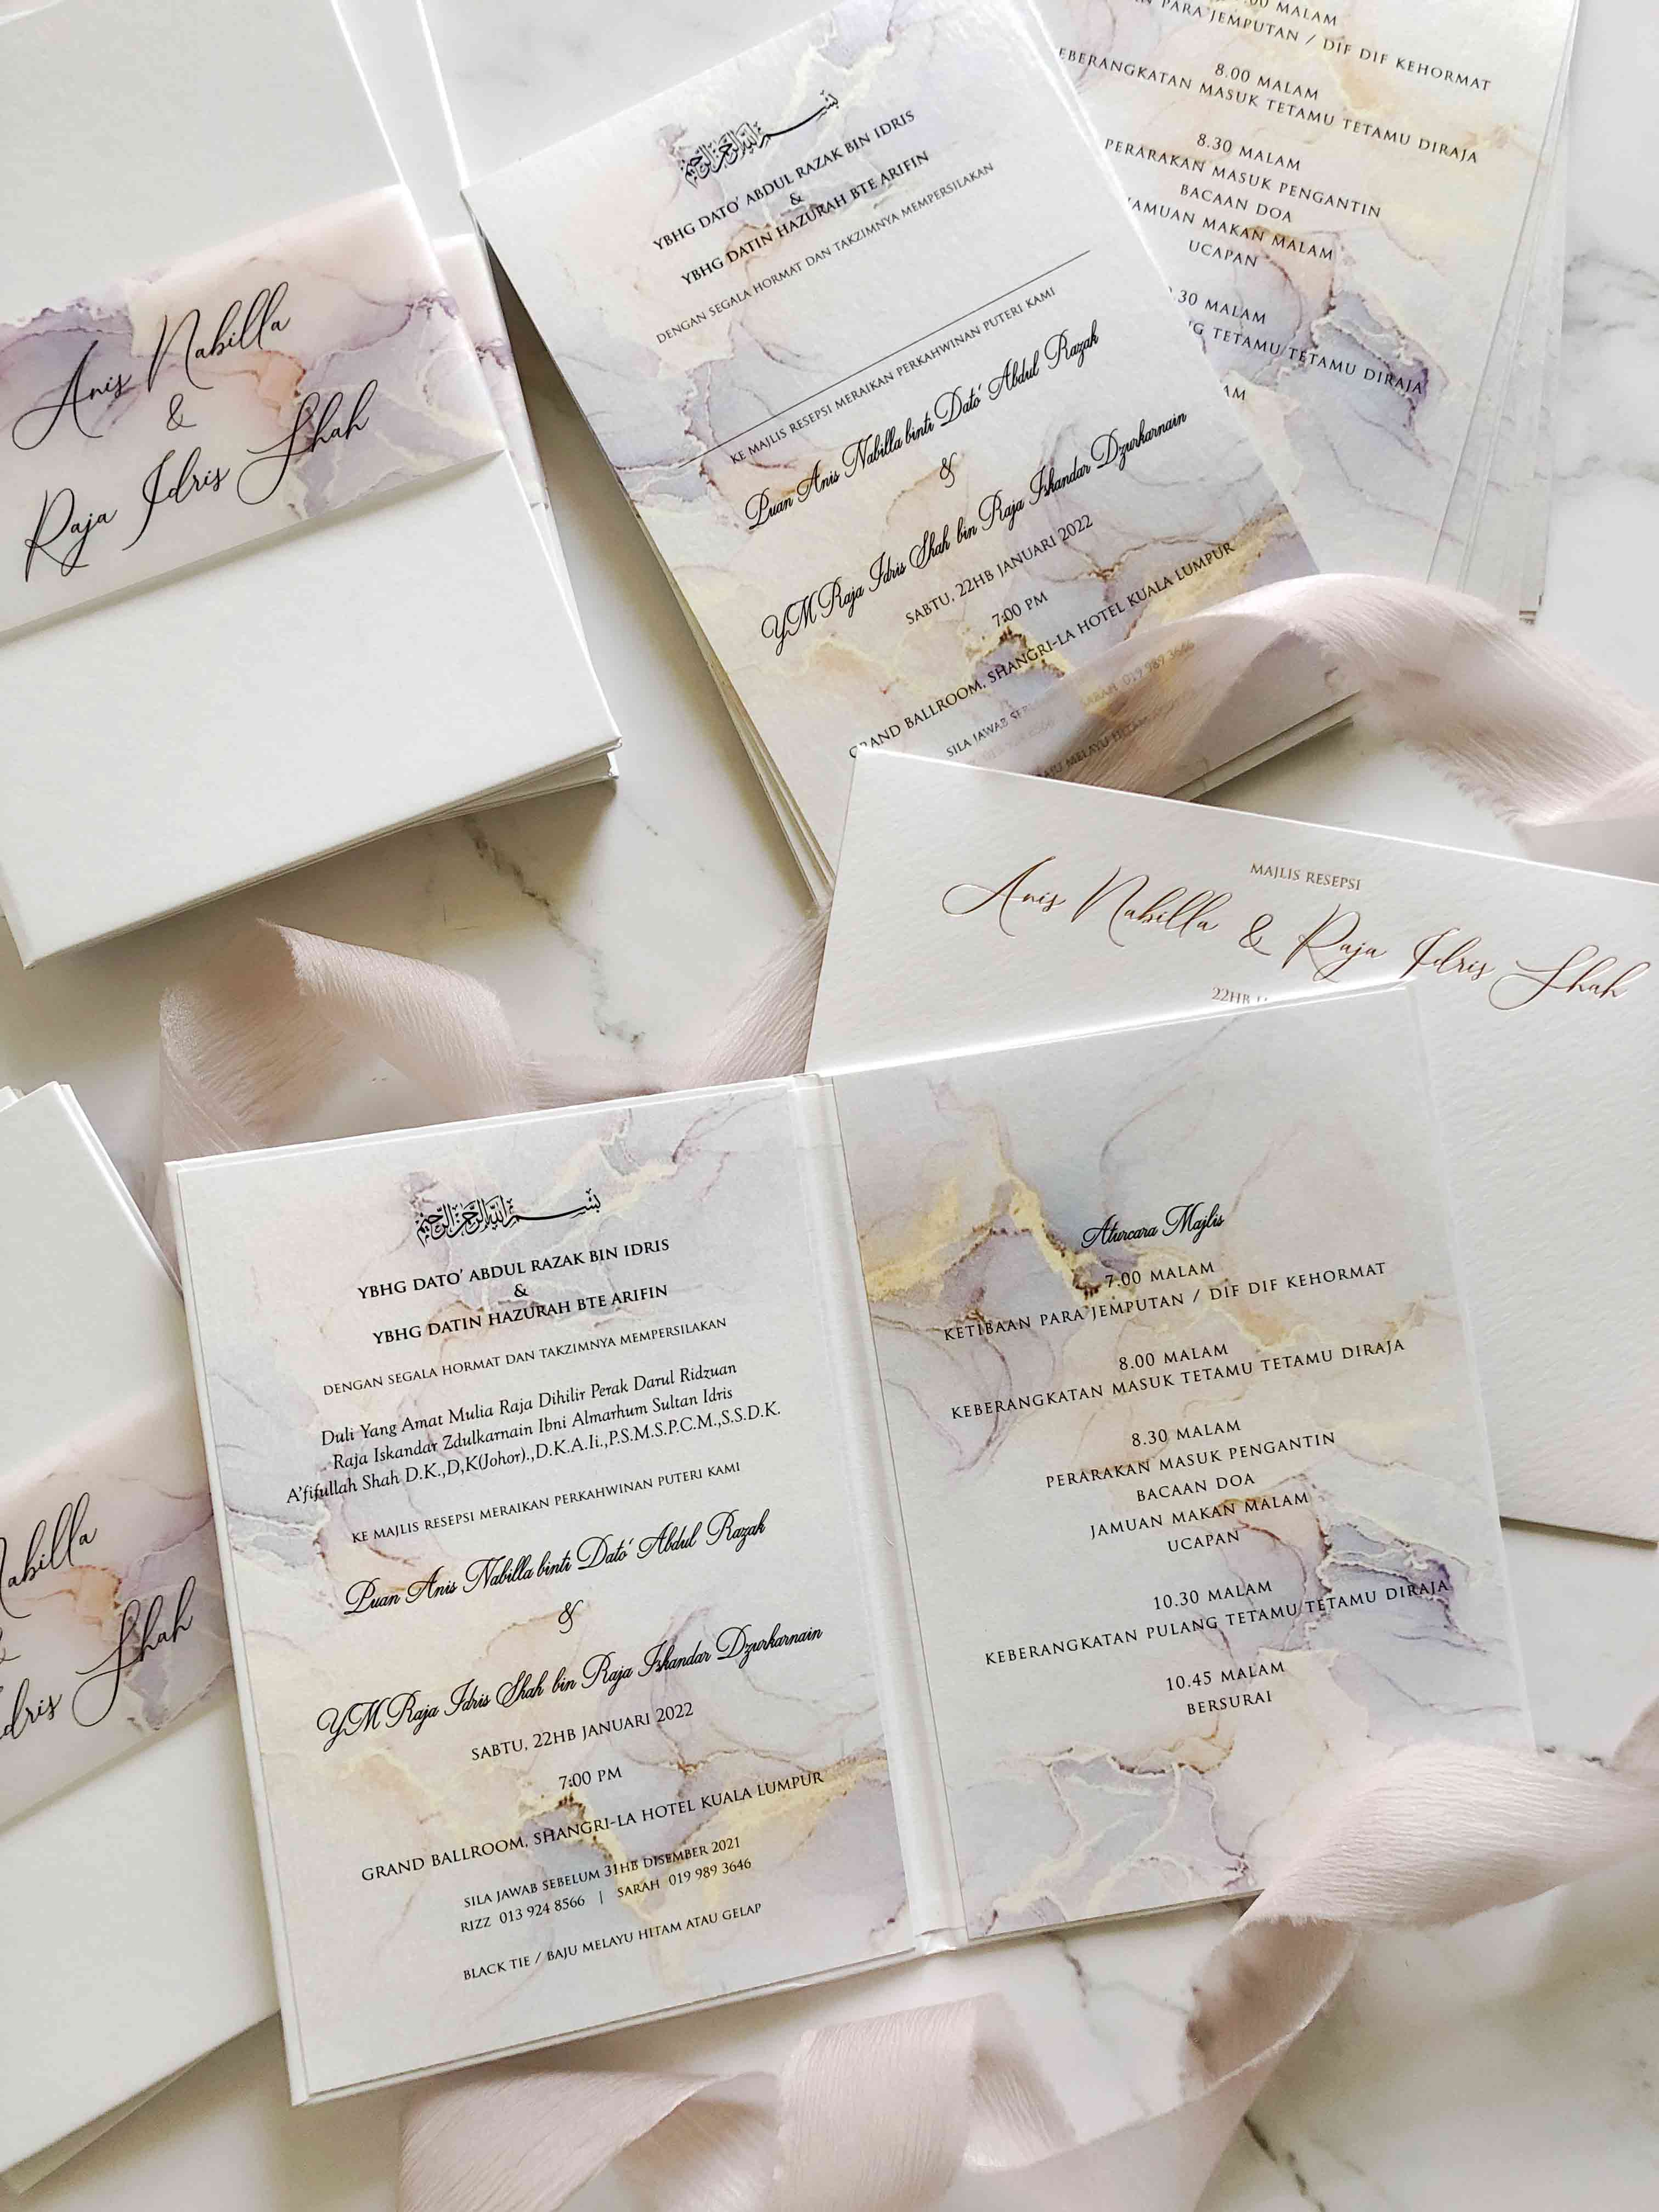 Anis Nabilla
&
Raja Idris Shah
بسم الله الرحمن الرحيم
YBHG DATO' ABDUL RAZAK BIN IDRIS
&
YBHG DATIN HAZURAH BTE ARIFIN
DENGAN SEGALA HORMAT DAN TAKZIMNYA MEMPERSILAKAN
KE MAJLIS RESEPSI MERAIKAN PERKAHWINAN PUTERI KAMI
Puan Anis Nabilla binti Dato' Abdul Razak
&
YM Raja Idris Shah bin Raja Iskandar Dzurkarnain
SABTU, 22HB JANUARI 2022
7:00 PM
GRAND BALLROOM, SHANGRI-LA HOTEL KUALA LUMPUR
SILA JAWAB
019 989 3646
MALAM
PARA JEMPUTAN / DIF DIF KEHORMAT
8.00 MALAM
KEBERANGKATAN MASUK TETAMU TETAMU DIRAJA
8.30 MALAM
PERARAKAN MASUK PENGANTIN
BACAAN DOA
JAMUAN MAKAN MALAM
UCAPAN
.30 MALAM
TETAMU/TETAMU DIRAJA
AM
MAJLIS RESEPSI
Anis Nabilla & Raja Idris Shah
22HB
بسم الله الرحمن الرحيم
YBHG DATO' ABDUL RAZAK BIN IDRIS
&
YBHG DATIN HAZURAH BTE ARIFIN
DENGAN SEGALA HORMAT DAN TAKZIMNYA MEMPERSILAKAN
Duli Yang Amat Mulia Raja Dihilir Perak Darul Ridzuan
Raja Iskandar Zdulkarnain Ibni Almarhum Sultan Idris
A'fifullah Shah D.K.,D,K(Johor).,D.K.A.Ii.,P.S.M.S.P.C.M.,S.S.D.K.
KE MAJLIS RESEPSI MERAIKAN PERKAHWINAN PUTERI KAMI
Puan Anis Nabilla binti Dato' Abdul Razak
&
YM Raja Idris Shah bin Raja Iskandar Dzurkarnain
SABTU, 22HB JANUARI 2022
7:00 PM
GRAND BALLROOM, SHANGRI-LA HOTEL KUALA LUMPUR
SILA JAWAB SEBELUM 31HB DISEMBER 2021
RIZZ 013 924 8566 | SARAH 019 989 3646
BLACK TIE / BAJU MELAYU HITAM ATAU GELAP
Aturcara Majlis
7.00 MALAM
KETIBAAN PARA JEMPUTAN / DIF DIF KEHORMAT
8.00 MALAM
KEBERANGKATAN MASUK TETAMU TETAMU DIRAJA
8.30 MALAM
PERARAKAN MASUK PENGANTIN
BACAAN DOA
JAMUAN MAKAN MALAM
UCAPAN
10.30 MALAM
KEBERANGKATAN PULANG TETAMU/TETAMU DIRAJA
10.45 MALAM
BERSURAI
Nabilla
&
Idris Shah